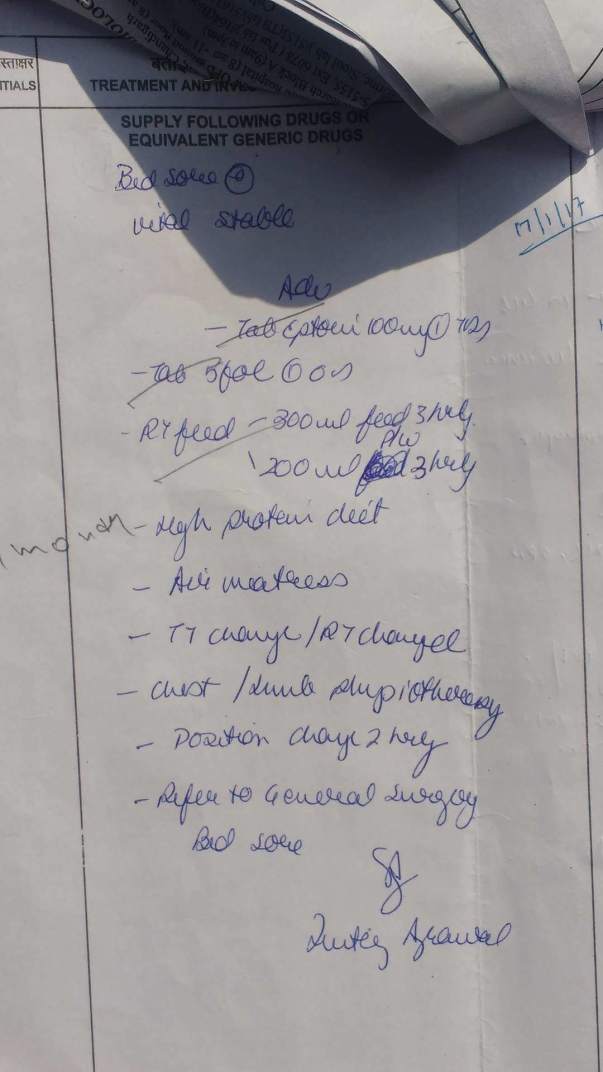 स्ताक्षर
TIALS
TREATMENT AND INVE
SUPPLY FOLLOWING DRUGS OR
EQUIVALENT GENERIC DRUGS
Bed sore ⊕
vital stable
17/1/17
Adv
- Tab Eptoin 100mg ① TDS
- Tab 5fol ① OD
- RT feed - 300 ml feed 3 hrly
200 ml P/W 3 hrly
1 month
- High protein diet
- Air matress
- TT change / RT changed
- Chest / Limb physiotherapy
- Position change 2 hrly
- Refer to General Surgey
Bed sore
Agrawal